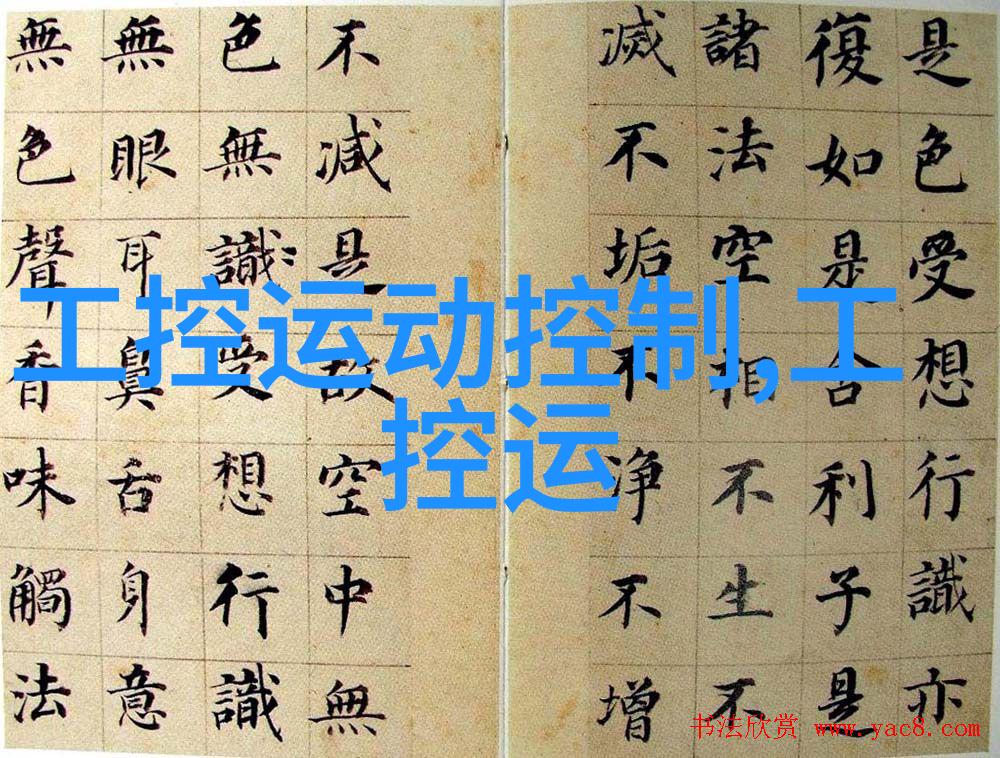 是色受想行識亦
復如是舍利子是
諸法空相不生不
滅不垢不净不增
不減是故空中無
色無識受想行識
無眼耳鼻舌身意
無色聲香味觸法
工控运动控制,工
控运
书法欣赏 www.yac8.com